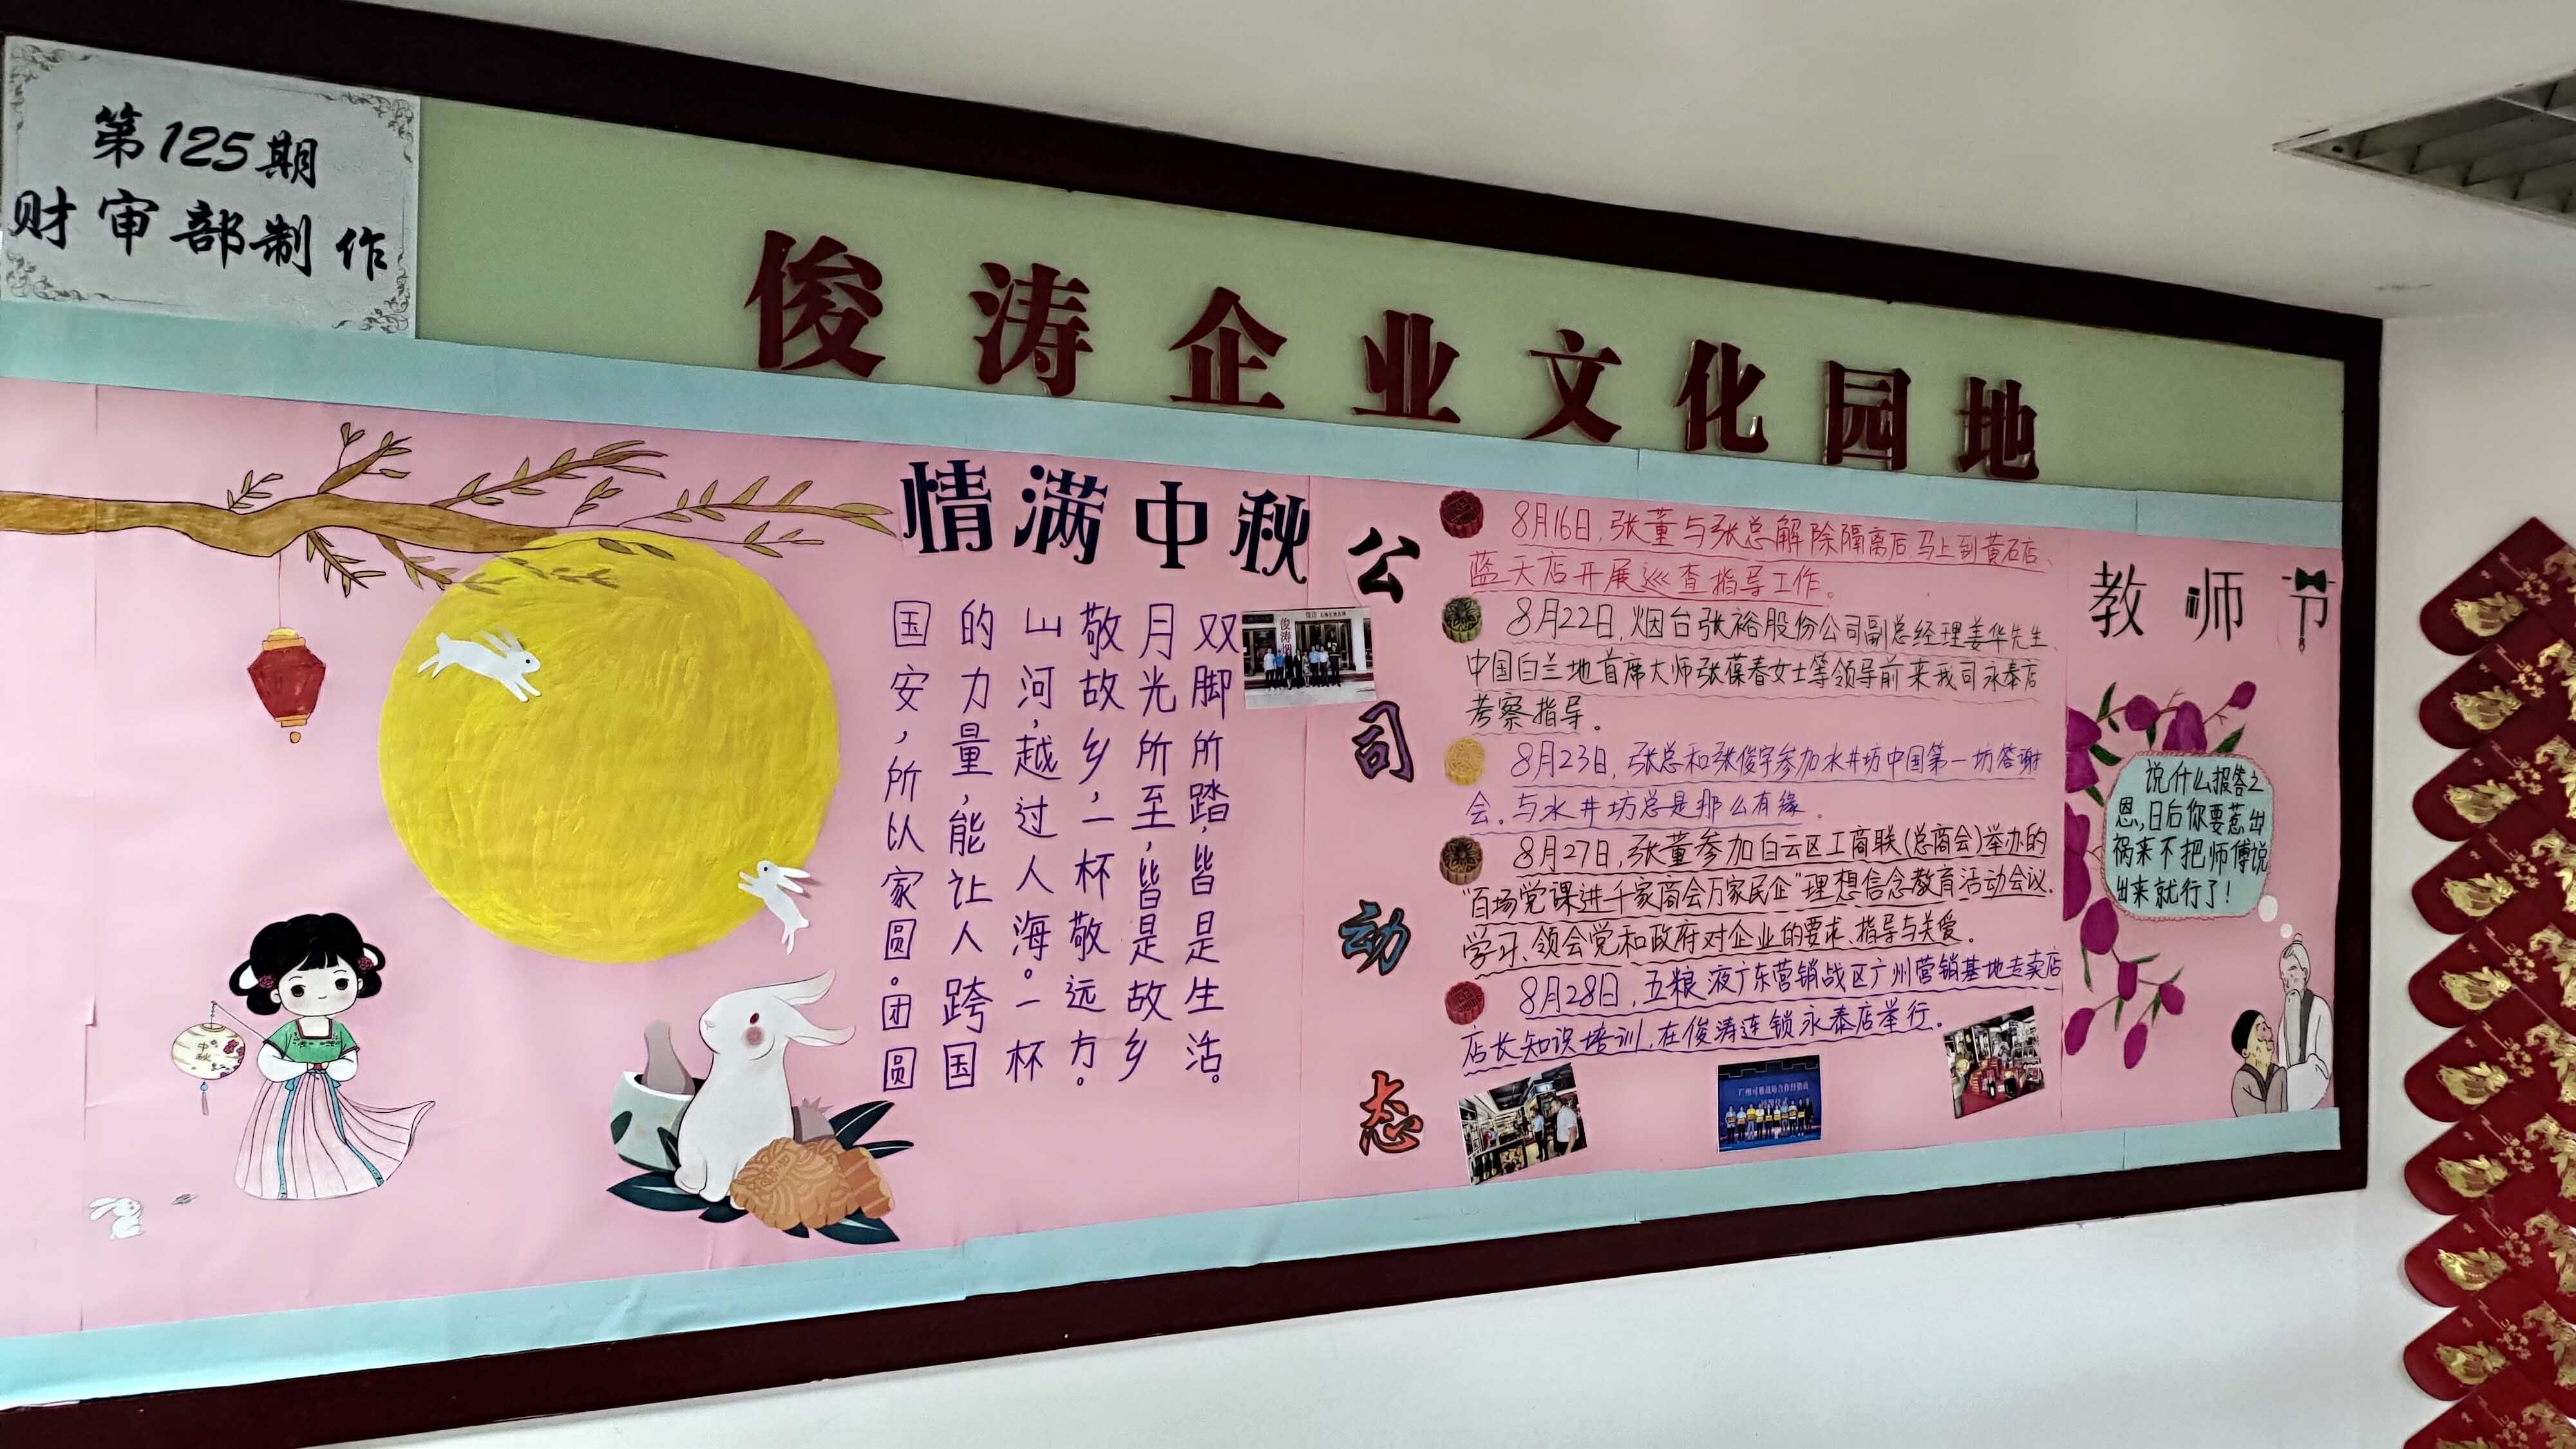 第125期
财审部制作
俊涛企业文化园地
情满中秋
双脚所踏，皆是生活。
月光所至，皆是故乡
敬故乡，一杯敬远方。
山河，越过人海。一杯
的力量，能让人跨国
国安，所以家圆。团圆
中秋
公司动态
8月16日，张董与张总解除隔离后马上到黄石店、
蓝天店开展巡查指导工作。
8月22日，烟台张裕股份公司副总经理姜华先生、
中国白兰地首席大师张葆春女士等领导前来我司永泰店
考察指导。
8月23日，张总和张俊宇参加水井坊中国第一坊答谢
会，与水井坊总是那么有缘。
8月27日，张董参加白云区工商联(总商会)举办的
“百场党课进千家商会万家民企”理想信念教育活动会议.
学习、领会党和政府对企业的要求、指导与关爱。
8月28日，五粮液广东营销战区广州营销基地专卖店
店长知识培训，在俊涛连锁永泰店举行。
教师节
说什么报答之
恩，日后你要惹出
祸来不把师傅说
出来就行了！